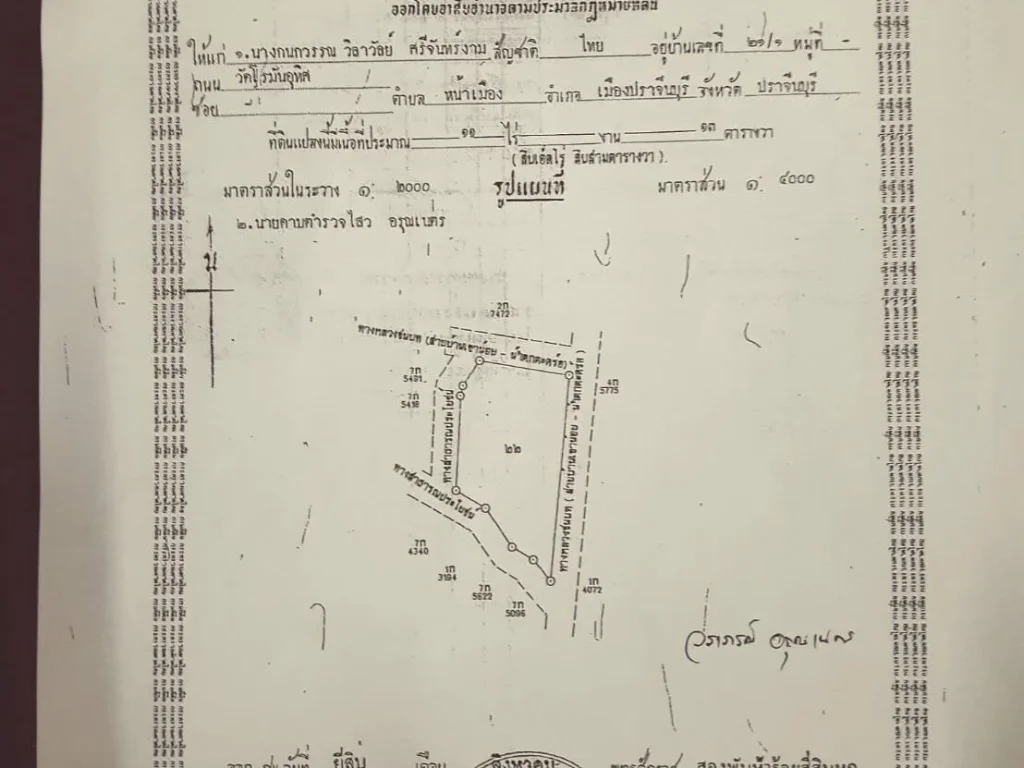 ออกโดยอาศัยอำนาจตามประมวลกฎหมายที่ดิน
ให้แก่ ๑.นางกนกวรรณ วิลาวัลย์ ศรีจันทร์งาม สัญชาติ ไทย อยู่บ้านเลขที่ ๒๑/๑ หมู่ที่ -
ถนน
ซอย - ตำบล หน้าเมือง อำเภอ เมืองปราจีนบุรี จังหวัด ปราจีนบุรี
ที่ดินแปลงนี้มีเนื้อที่ประมาณ ๑๑ ไร่ - งาน ๑๓ ตารางวา
(สิบเอ็ดไร่ สิบสามตารางวา)
มาตราส่วนในระวาง ๑: ๒๐๐๐ รูปแผนที่ มาตราส่วน ๑: ๔๐๐๐
๒.นายดาบตำรวจไสว อรุณเนตร
น
2ก
7472
ทางหลวงชนบท (สายบ้านเขาน้อย - น้ำตกตะคร้อ)
7ก
5491
7ก
5498
4ก
5775
ทางสาธารณประโยชน์
๒๒
ทางหลวงชนบท (สายบ้านเขาน้อย - น้ำตกตะคร้อ)
ทางสาธารณประโยชน์
7ก
4340
1ก
3194
7ก
5622
7ก
5096
1ก
4072
วราภรณ์ อรุณเนตร
ออก ณ วันที่ ยี่สิบ เดือน สิงหาคม พุทธศักราช